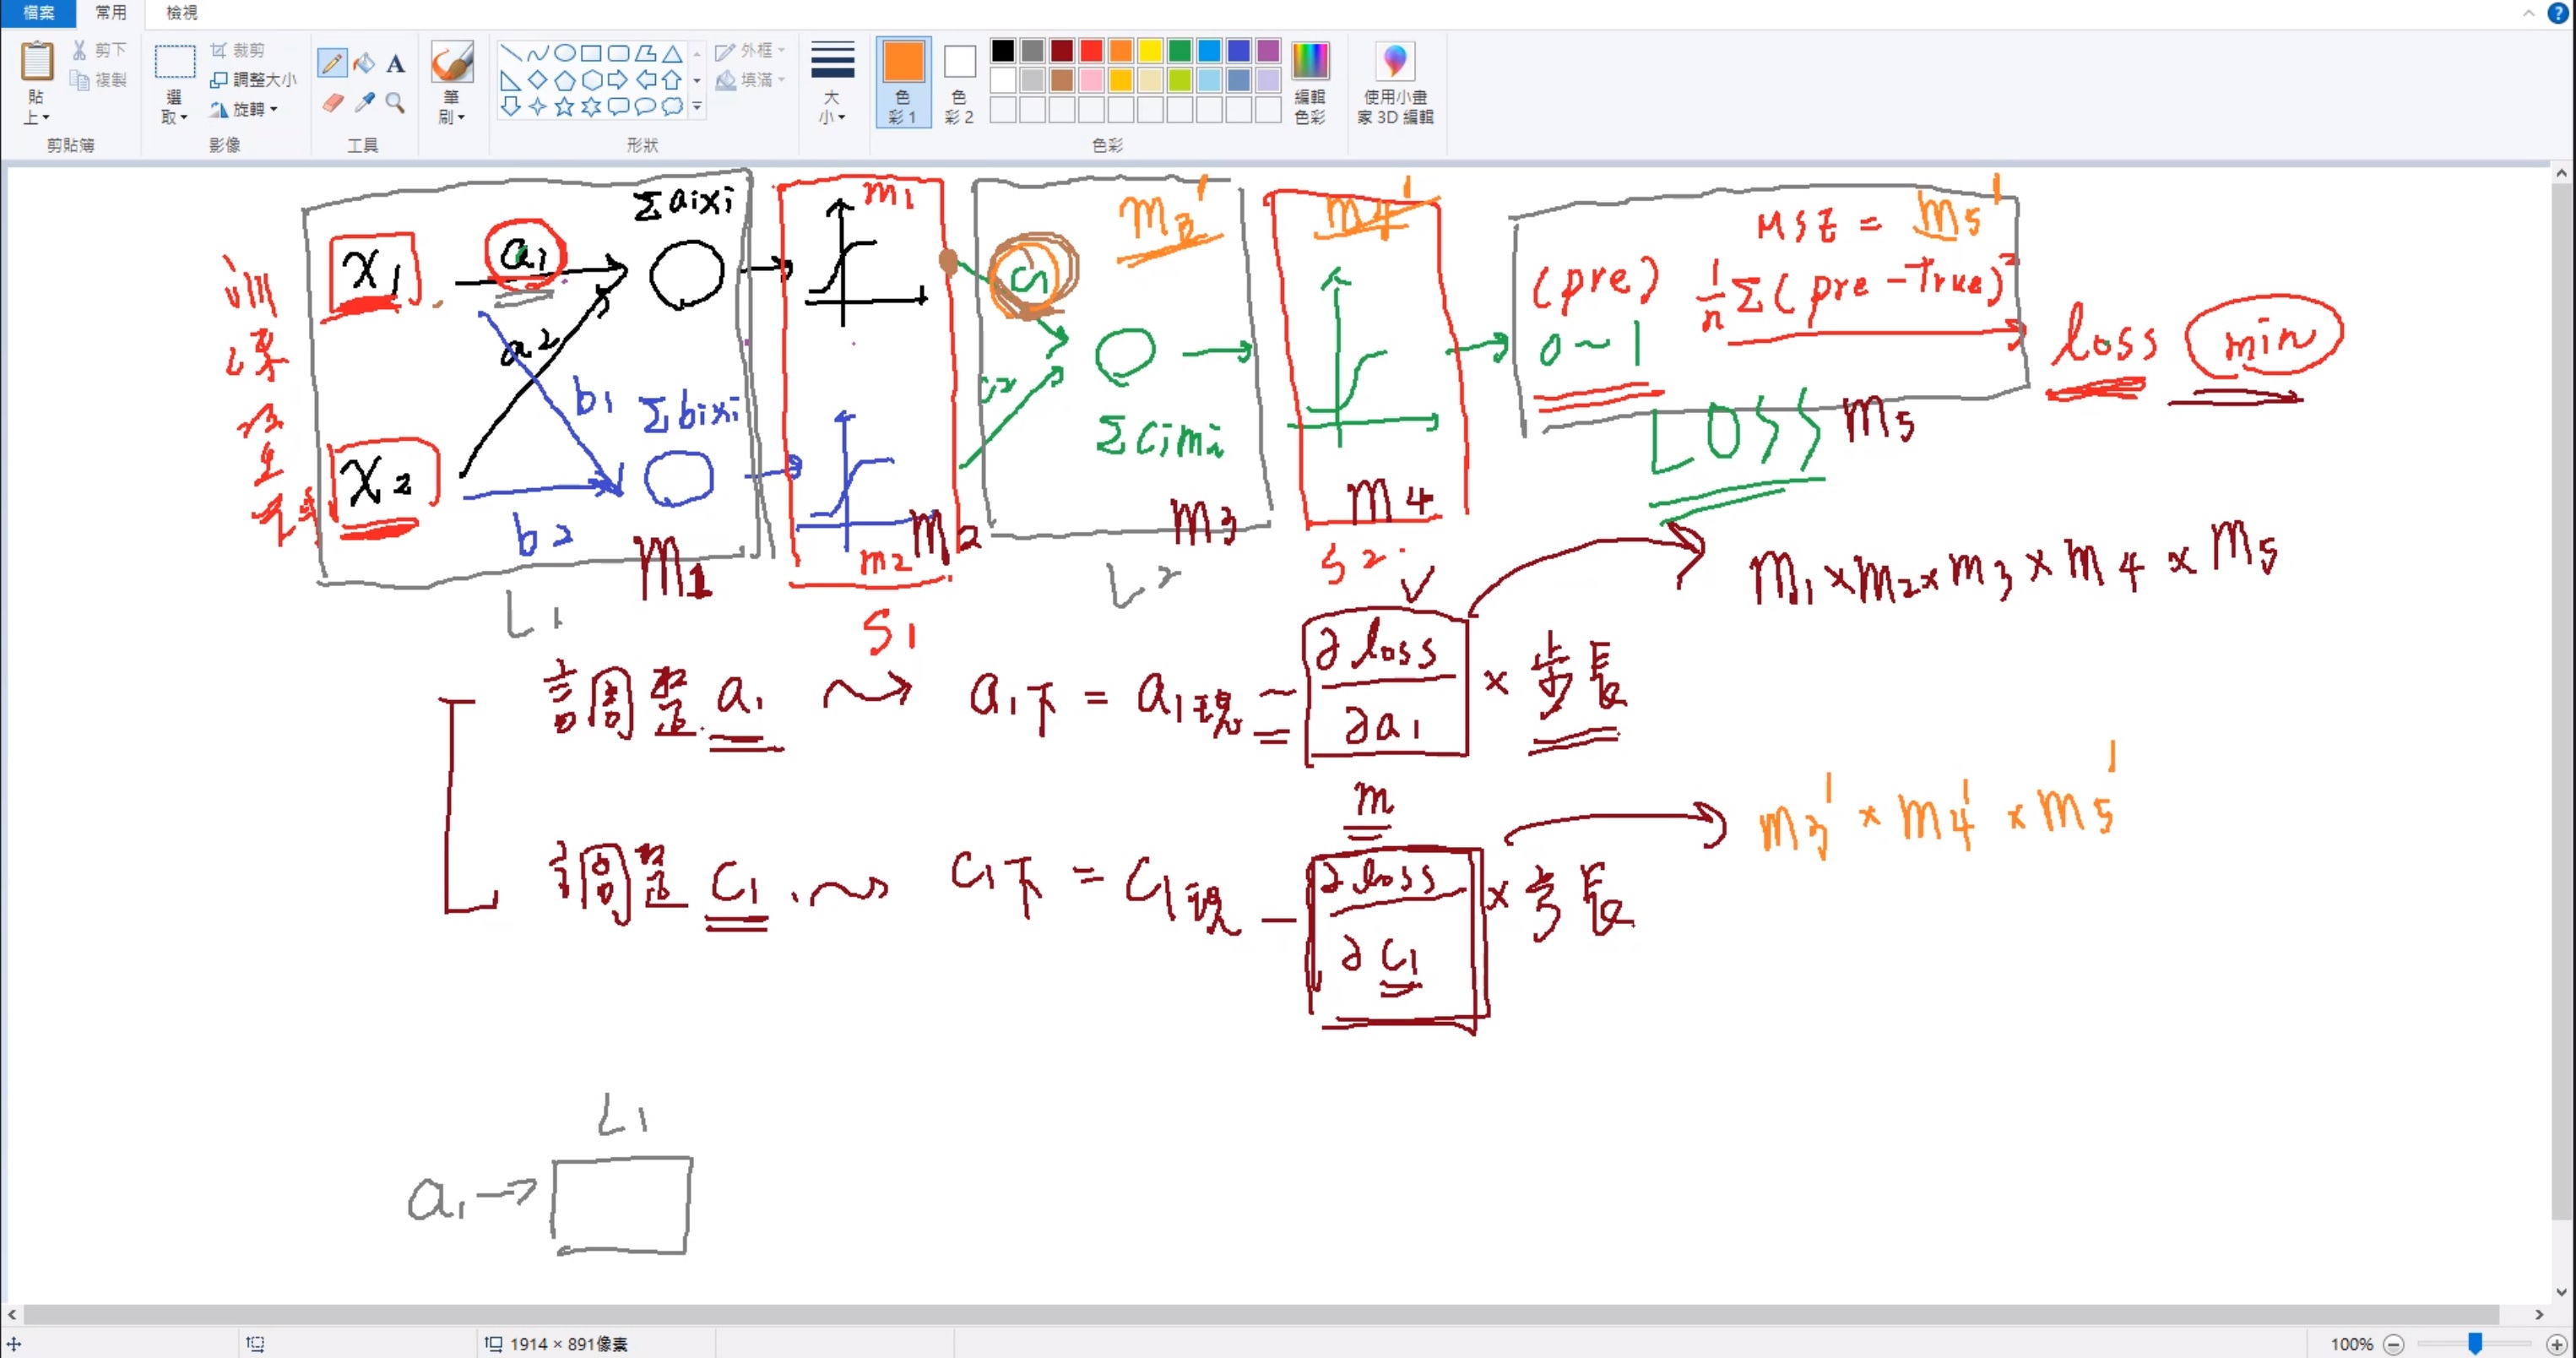 檔案 常用 檢視
貼上 剪下 複製 剪貼簿
選取 裁剪 調整大小 旋轉 影像
A 工具
筆刷
形狀 外框 填滿
大小
色彩 1 色彩 2 編輯色彩 色彩
使用小畫家 3D 編輯
訓練
x1 a1 Σaixi
a2
b1 Σbixi
x2
b2
M1
L1
m1
m2
M2
S1
C1
M3'
C2
Σcimi
M3
L2
M4'
M4
S2
MSE = M5'
(pre) 1/n Σ(pre-True)²
0~1
loss min
LOSS M5
M1×M2×M3×M4×M5
調整 a1 a1下 = a1現 - ∂loss/∂a1 × 步長
m
M3' × M4' × M5'
調整 C1 C1下 = C1現 - ∂loss/∂C1 × 步長
L1
a1→
1914 × 891像素
100%